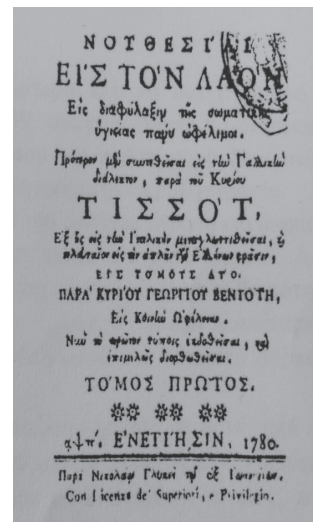 ΝΟΥΘΕΣΙΑΙ
ΕΙΣ ΤΟΝ ΛΑΟΝ
Εἰς διαφύλαξιν τῆς σωματικῆς
ὑγιείας πάνυ ὠφέλιμοι.
Πρότερον μὲν συντεθεῖσαι εἰς τὴν Γαλλικὴν
διάλεκτον, παρὰ τοῦ Κυρίου
ΤΙΣΣΟΤ,
Ἐξ ἧς εἰς τὴν Ἰταλικὴν μεταγλωττισθεῖσαι, ᾗ
εἰς τὴν ἁπλῆν τῶν Ἑλλήνων φράσιν,
ΕΙΣ ΤΟΜΟΥΣ ΔΥΟ.
ΠΑΡΑ' ΚΥΡΙΟΥ ΓΕΩΡΓΙΟΥ ΒΕΝΤΟΤΗ,
Εἰς Κοινὴν Ὠφέλειαν.
Νῦν τὸ πρῶτον τύποις ἐκδοθεῖσαι, καὶ
ἐπιμελῶς διορθωθεῖσαι.
ΤΟΜΟΣ ΠΡΩΤΟΣ.
αψπ'. ΕΝΕΤΙΗΣΙΝ, 1780.
Παρὰ Νικολάῳ Γλυκεῖ τῷ ἐξ Ἰωαννίνων.
Con Licenza de' Superiori, e Privilegio.